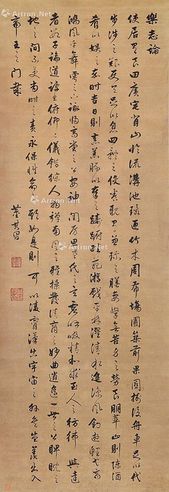 樂志論
使居有良田廣宅背山臨流溝池環匝竹木周布場圃築前果園樹後舟車足以代
步涉之難使令足以息四體之役養親有兼珍之膳妻孥無苦身之勞良朋萃止則陳酒
肴以娛之嘉時吉日則烹羔豚以奉之躊躇畦苑遊戲平林濯清水追涼風釣遊鯉弋高
鴻諷於舞雩之下詠歸高堂之上安神閨房思老氏之玄虛呼吸精和求至人之彷彿與達
者數子論道講書俯仰二儀錯綜人物彈南風之雅操發清商之妙曲逍遙一世之上睥睨天
地之間不受當時之責永保性命之期如是則可以凌霄漢出宇宙之外矣豈羨夫入
帝王之門哉
董其昌